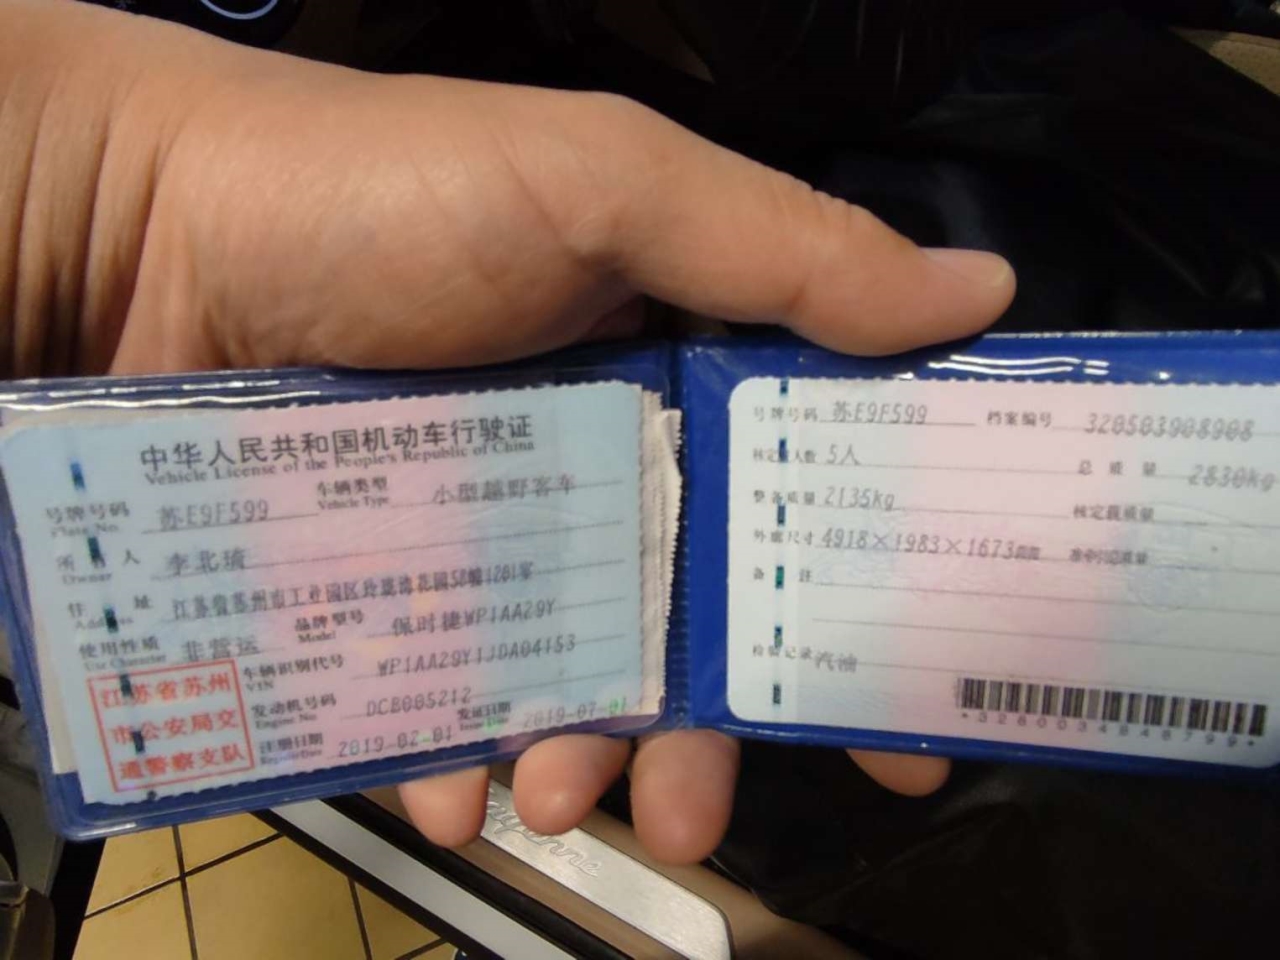 中华人民共和国机动车行驶证
Vehicle License of the People's Republic of China
号牌号码 苏E9F599 车辆类型 小型越野客车
Plate No. Vehicle Type
所 人 李北琦
Owner
住 址 江苏省苏州市工业园区玲珑湾花园58幢1201室
Address
使用性质 非营运 品牌型号 保时捷WP1AA29Y
Use Character Model
车辆识别代号 WP1AA29Y1JDA04153
VIN
发动机号码 DCB005212 发证日期 2019-07-01
Engine No. Issue Date
注册日期 2019-02-01
Register Date
江苏省苏州
市公安局交
通警察支队
号牌号码 苏E9F599 档案编号 320503908908
核定人数 5人 总质量 2830kg
整备质量 2135kg 核定载质量
外廓尺寸 4918×1983×1673mm 准牵引总质量
备 注
检验记录 汽油
*3280034848799*
cayenne